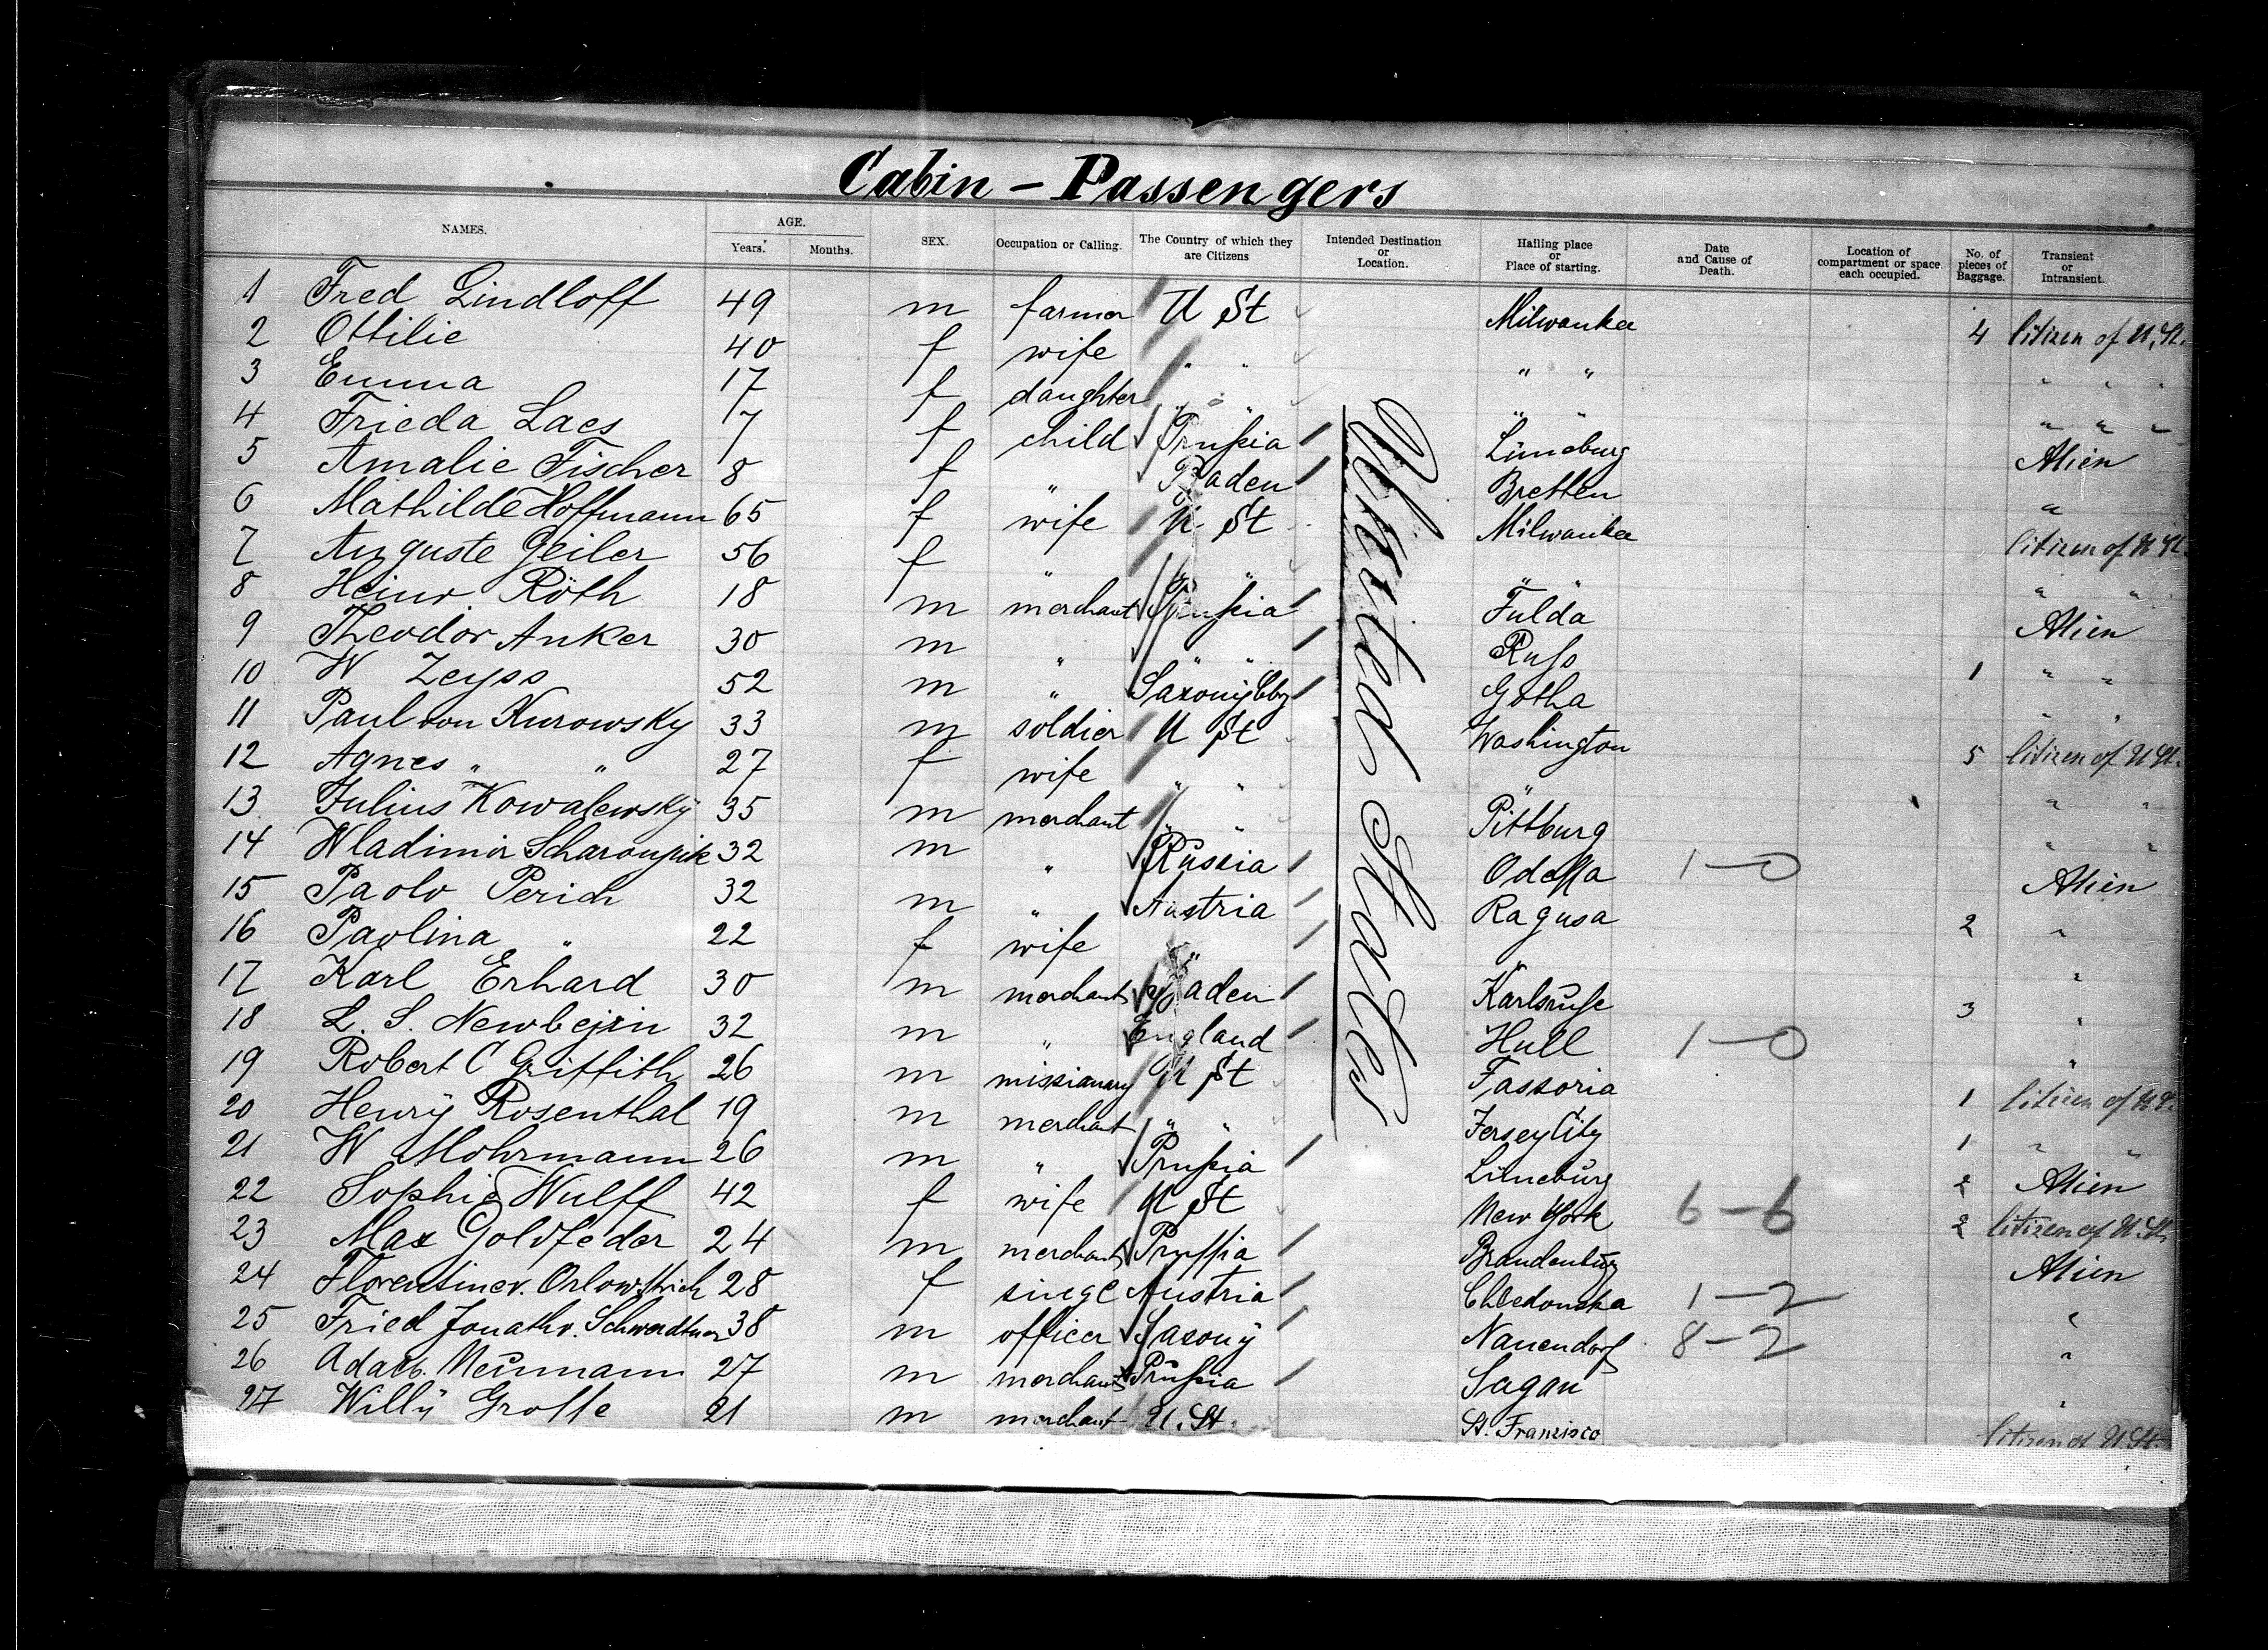 Cabin - Passengers
NAMES. AGE. Years. Months. SEX. Occupation or Calling. The Country of which they are Citizens Intended Destination or Location. Hailing place or Place of starting. Date and Cause of Death. Location of compartment or space each occupied. No. of pieces of Baggage. Transient or Intransient.
1 Fred Lindloff 49 m farmer U St Milwaukee 4 Citizen of U. St.
2 Ottilie 40 f wife " " " " " " "
3 Emma 17 f daughter " " " " " " "
4 Frieda Laes 7 f child Prußia Lüneburg Alien
5 Amalie Fischer 8 f " Baden Bretten "
6 Mathilde Hoffmann 65 f wife U St Milwaukee Citizen of U St.
7 Auguste Geiler 56 f " " " " " " "
8 Heinr Röth 18 m merchant Prußia Fulda Alien
9 Theodor Anker 30 m " " " Ruß 1 " "
10 W Zeyss 52 m " Saxony Cbg Gotha " "
11 Paul von Kurowsky 33 m soldier U St Washington 5 Citizen of U St.
12 Agnes " " 27 f wife " " " " "
13 Julius Kowalewsky 35 m merchant " " Pittburg " "
14 Wladimir 32 m " Russia Odessa 1-0 Alien
15 Paolo Perich 32 m " Austria Ragusa 2 "
16 Paolina " 22 f wife " " "
17 Karl Erhard 30 m merchant Baden Karlsruhe 3 "
18 L. S. 32 m " England Hull 1-0 "
19 Robert C Griffith 26 m missionary U St Fassoria 1 Citizen of U St.
20 Henry Rosenthal 19 m merchant " " Jersey City 1 " "
21 W Mohrmann 26 m " Prußia Lüneburg 2 Alien
22 Sophie Wulff 42 f wife U St New York 6-6 2 Citizen of U. St.
23 Max Goldfeder 24 m merchant Prussia Brandenburg Alien
24 Florentine v. 28 f Austria 1-2 "
25 Fried Jonath v. Schwerdtner 38 m officer Saxony Nauendorf 8-2 "
26 Adalb. Neumann 27 m merchant Prußia Sagan "
27 Willy Grosse 21 m merchant U. St. St. Franzisco Citizen of U St.
United States